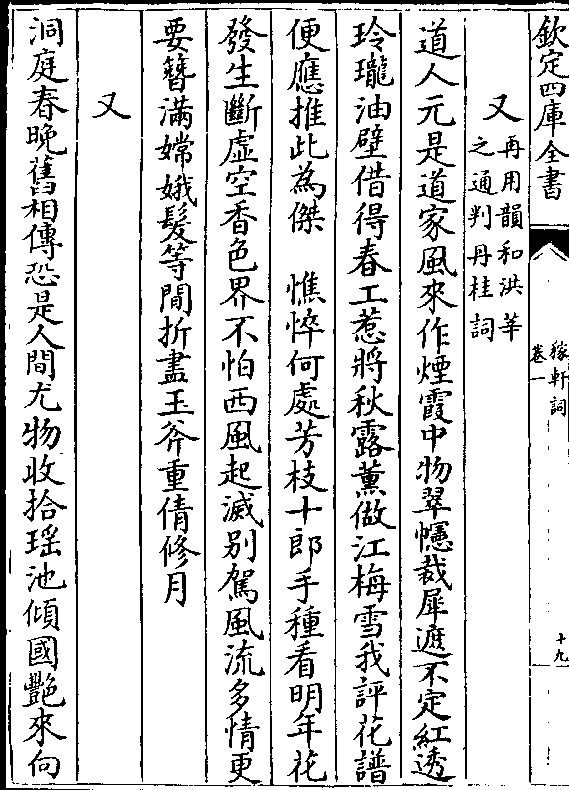 欽定四庫全書
稼軒詞
卷一
十九
又再用韻和洪莘
之通判丹桂詞
道人元是道家風來作煙霞中物翠幰裁犀遮不定紅透
玲瓏油壁借得春工惹將秋露薰做江梅雪我評花譜
便應推此為傑　憔悴何處芳枝十郎手種看明年花
發生斷虛空香色界不怕西風起滅别駕風流多情更
要簪滿嫦娥髮等閒折盡玉斧重倩修月
又
洞庭春晚舊相傳恐是人間尤物收拾瑶池傾國艷來向